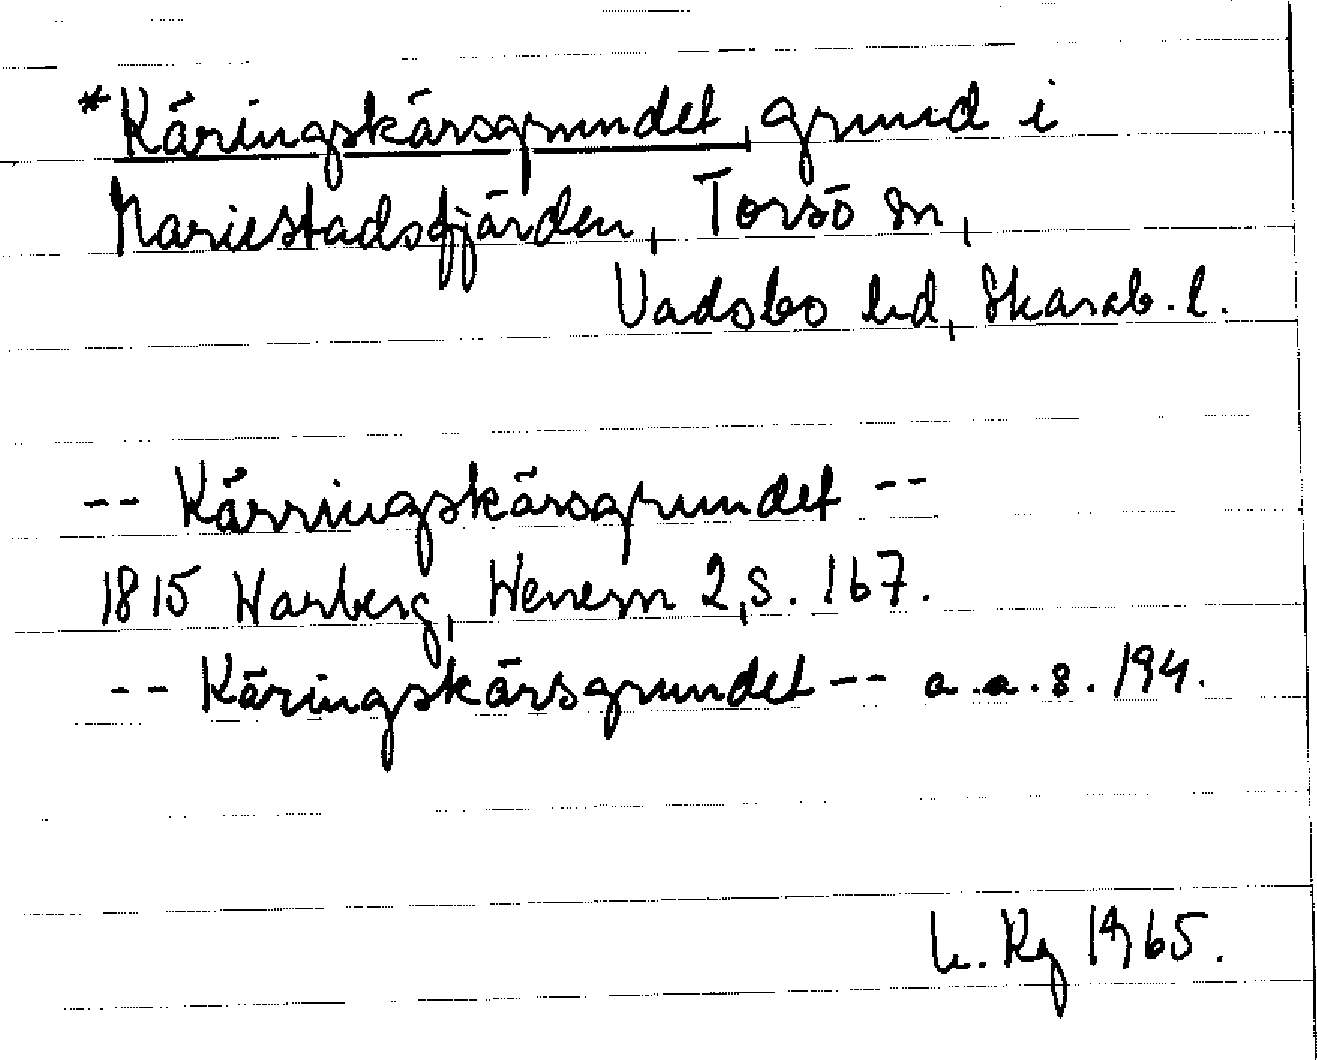 *Käringskärsgrundet, grund i
Mariestadsfjärden, Torsö sn,
Vadsbo hd, Skarab. l.
-- Kärringskärsgrundet --
1815 Warberg, Wenern 2, s. 167.
-- Käringskärsgrundet -- a.a.s. 194.
L. Rg 1965.